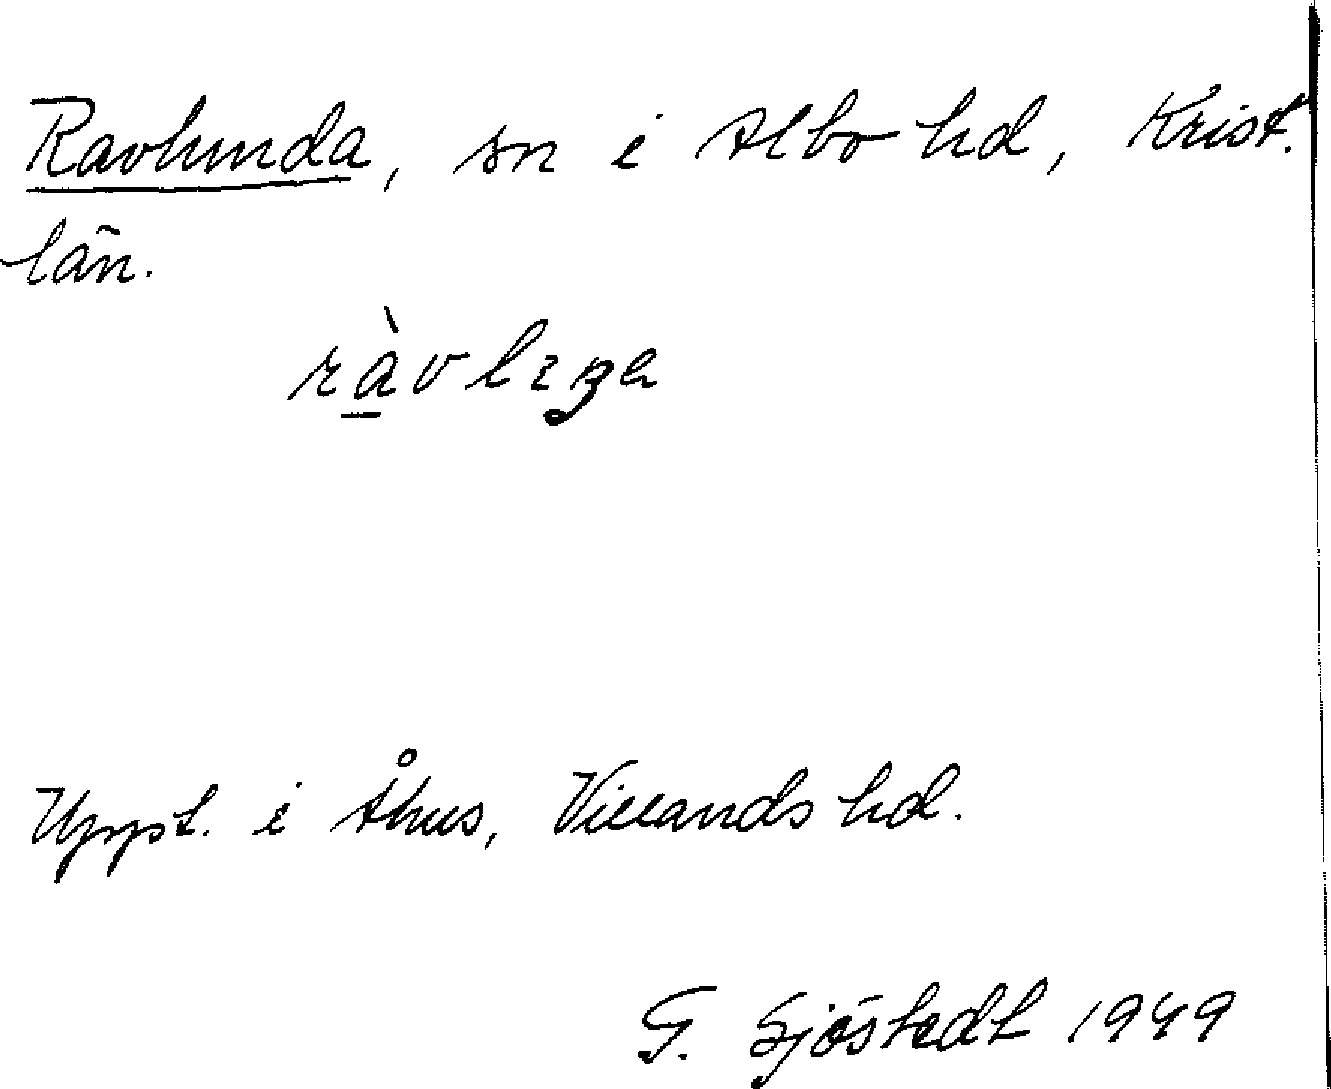 Ravlunda, sn i Albo hd, Krist.
län.
Uppt. i Åhus, Villands hd.
G. Sjöstedt 1949